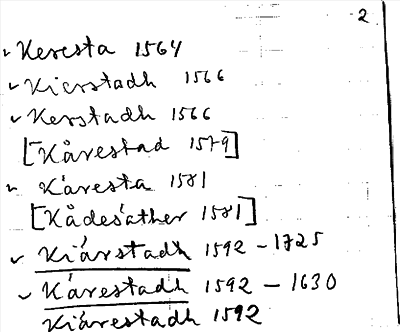 2
✓ Keresta 1564
✓ Kierstadh 1566
✓ Kerstadh 1566
[Kårestad 1579]
✓ Kåresta 1581
[Kådesather 1581]
✓ Kiärstadh 1592 - 1725
✓ Kårestadh 1592 - 1630
Kiårestadh 1592